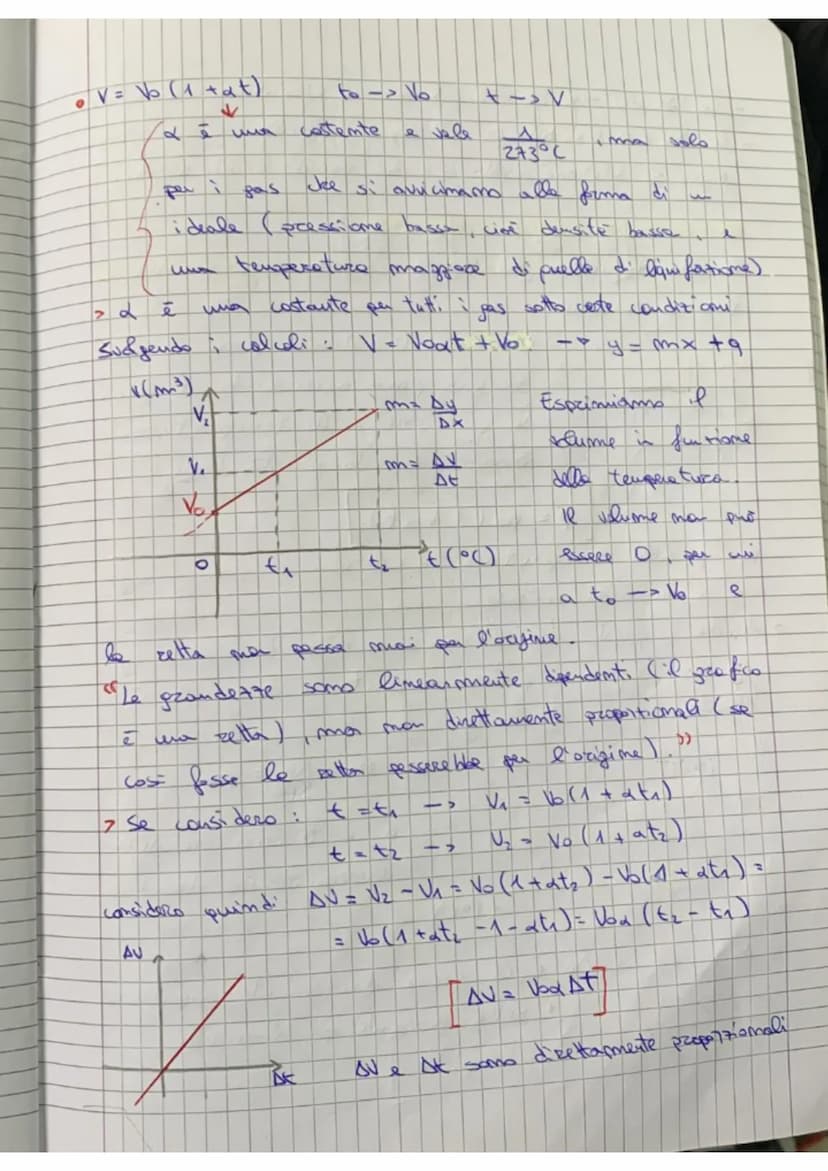 • V = V₀ (1 + αt)    t₀ -> V₀    t -> V
α è una costante e vale 1/273°C , ma solo
per i gas che si avvicinano alla forma di un
ideale (pressione bassa, cioè densità bassa, e
una temperatura maggiore di quella di liquefazione)
> α è una costante per tutti i gas sotto certe condizioni
Svolgendo i calcoli : V = V₀αt + V₀ -> y = mx + q
V(m³)
V₂
V₁
V₀
0
t₁
t₂
t(°C)
m = Δy/Δx
m = ΔV/Δt
Esprimiamo il
volume in funzione
della temperatura.
Il volume non può
essere 0, per cui
a t₀ -> V₀ e
la retta non passa mai per l'origine.
"Le grandezze sono linearmente dipendenti (il grafico
è una retta), ma non direttamente proporzionali (se
così fosse la retta passerebbe per l'origine)."
> Se considero : t = t₁ -> V₁ = V₀(1 + αt₁)
t = t₂ -> V₂ = V₀ (1 + αt₂)
considero quindi ΔV = V₂ - V₁ = V₀(1+αt₂) - V₀(1 + αt₁) =
= V₀(1 + αt₂ - 1 - αt₁) = V₀α (t₂ - t₁)
ΔV
Δt
[ΔV = V₀αΔt]
ΔV e Δt sono direttamente proporzionali